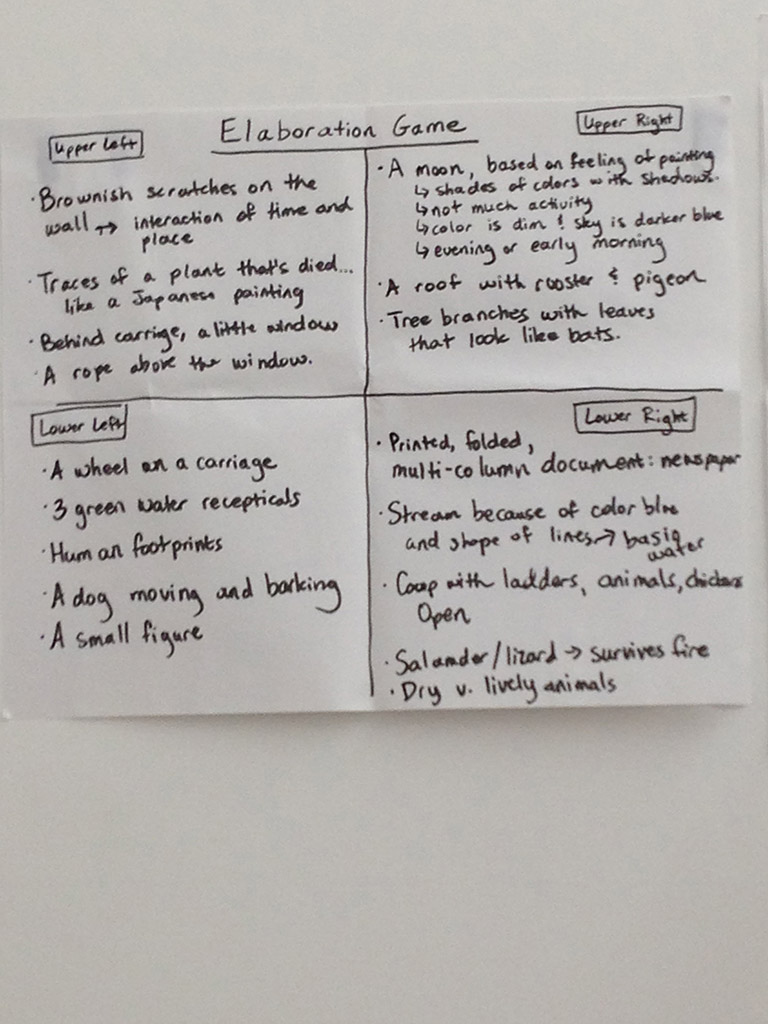 Elaboration Game
Upper Left
· Brownish scratches on the
wall ↦ interaction of time and
place
· Traces of a plant that's died...
like a Japanese painting
· Behind carriage, a little window
· A rope above the window.
Upper Right
· A moon, based on feeling of painting
↳ shades of colors with shadows.
↳ not much activity
↳ color is dim & sky is darker blue
↳ evening or early morning
· A roof with rooster & pigeon
· Tree branches with leaves
that look like bats.
Lower Left
· A wheel on a carriage
· 3 green water recepticals
· Human footprints
· A dog moving and barking
· A small figure
Lower Right
· Printed, folded,
multi-column document: newspaper
· Stream because of color blue
and shape of lines →
water
· Coop with ladders, animals, chickens
Open
· Salamder/lizard → survives fire
· Dry v. lively animals